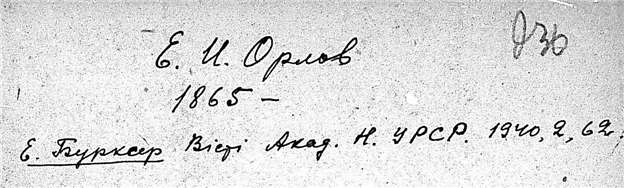 Е. И. Орлов
1865 –
Е. Бурксер Вісті Акад. Н. УРСР. 1940, 2, 62.